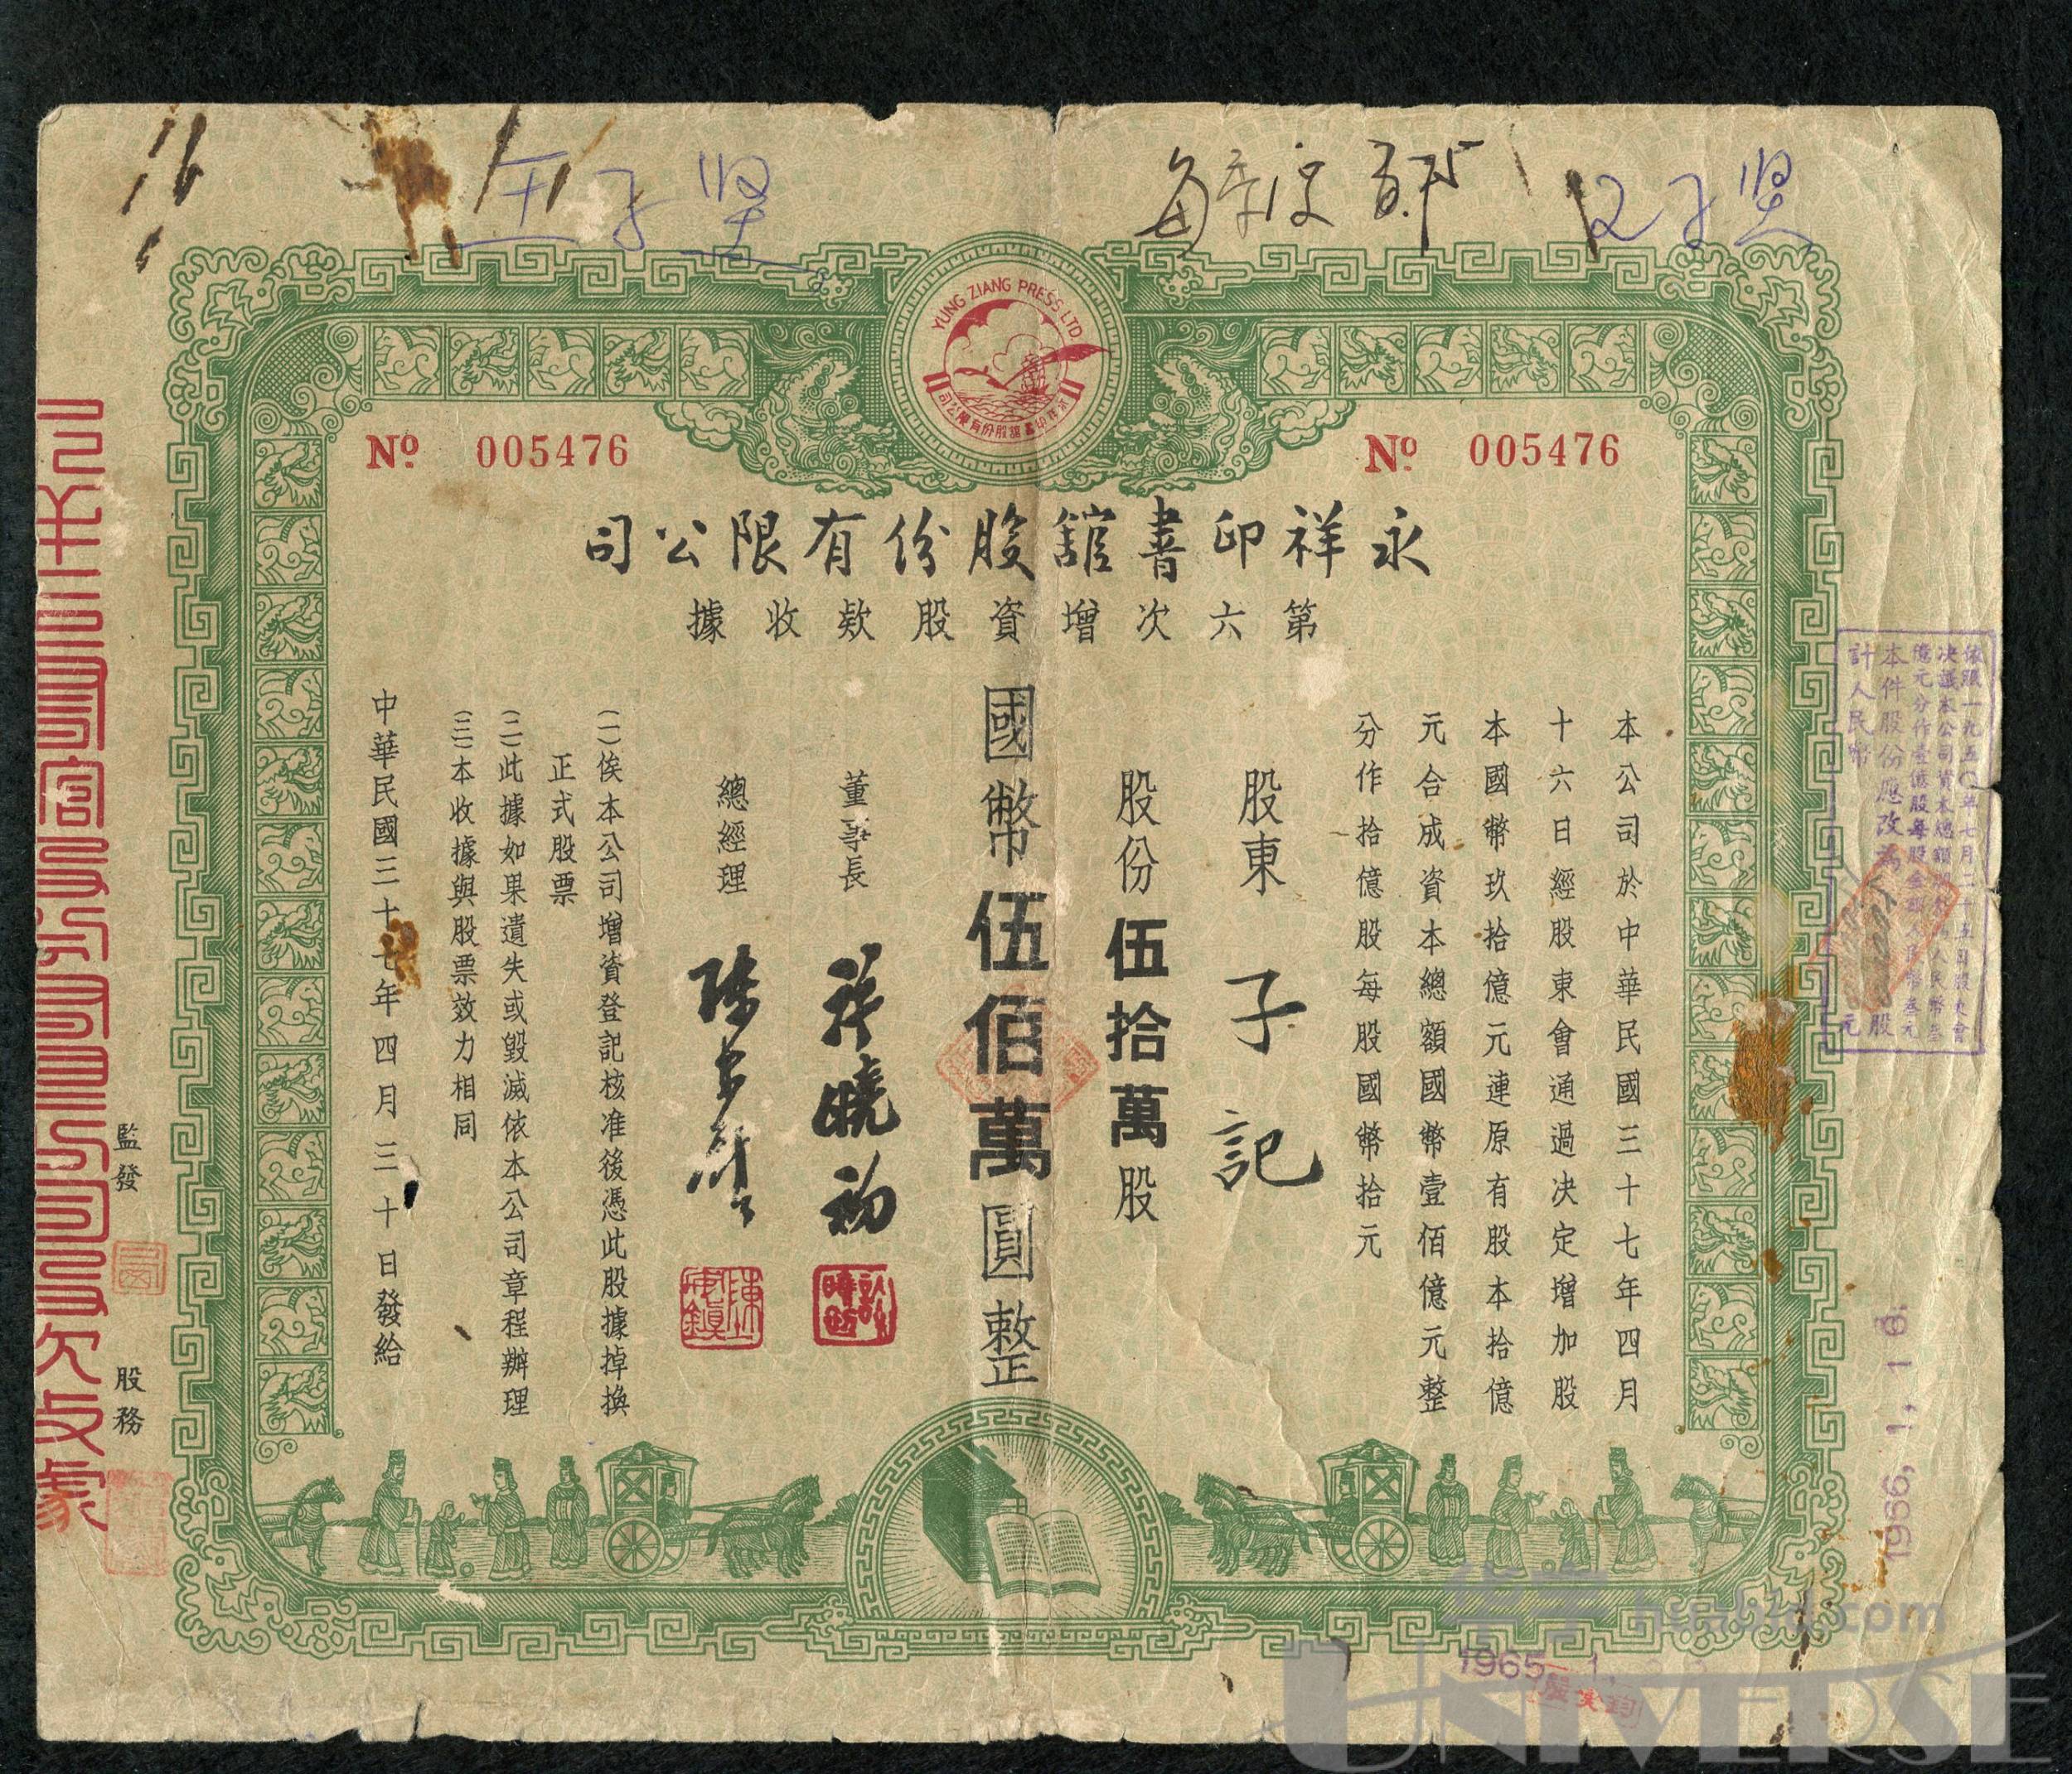 YUNG ZIANG PRESS LTD
永祥印書館股份有限公司
No 005476
No 005476
永祥印書館股份有限公司
第六次增資股款收據
本公司於中華民國三十七年四月
十六日經股東會通過決定增加股
本國幣玖拾億元連原有股本拾億
元合成資本總額國幣壹佰億元整
分作拾億股每股國幣拾元
股東 子記
股份伍拾萬股
國幣伍佰萬圓整
董事長
總經理
(一)俟本公司增資登記核准後憑此股據掉換
正式股票
(二)此據如果遺失或毀滅依本公司章程辦理
(三)本收據與股票效力相同
中華民國三十七年四月三十日發給
監發
股務
陳安鎮
依照一九五〇年七月二十五日股東會
決議本公司資本總額
億元分作壹億股每股金額人民幣叁元
本件股份應改為 股
計人民幣 元
1966, 1, 1 8.
1965
华宇 huabid.com
UNIVERSE